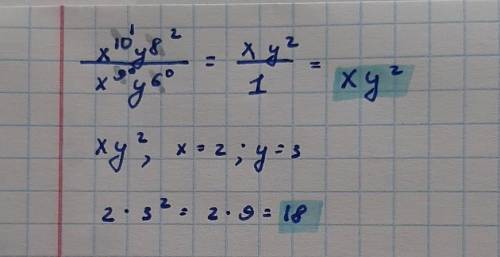 x^10^1 y^8^2 / x^9^0 y^6^0 = x y^2 / 1 = x y^2
xy^2, x = 2 ; y = 3
2 · 3^2 = 2 · 9 = 18